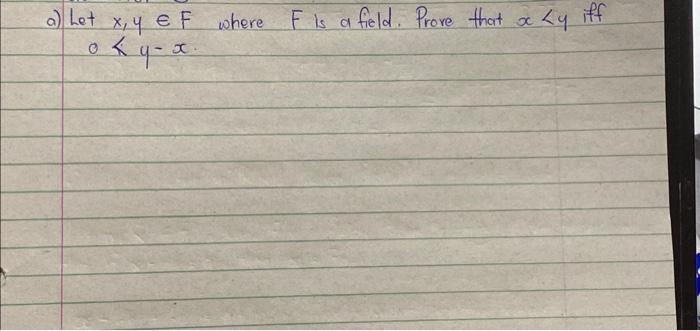 a) Let x, y ∈ F where F is a field. Prove that x < y iff
0 < y - x.